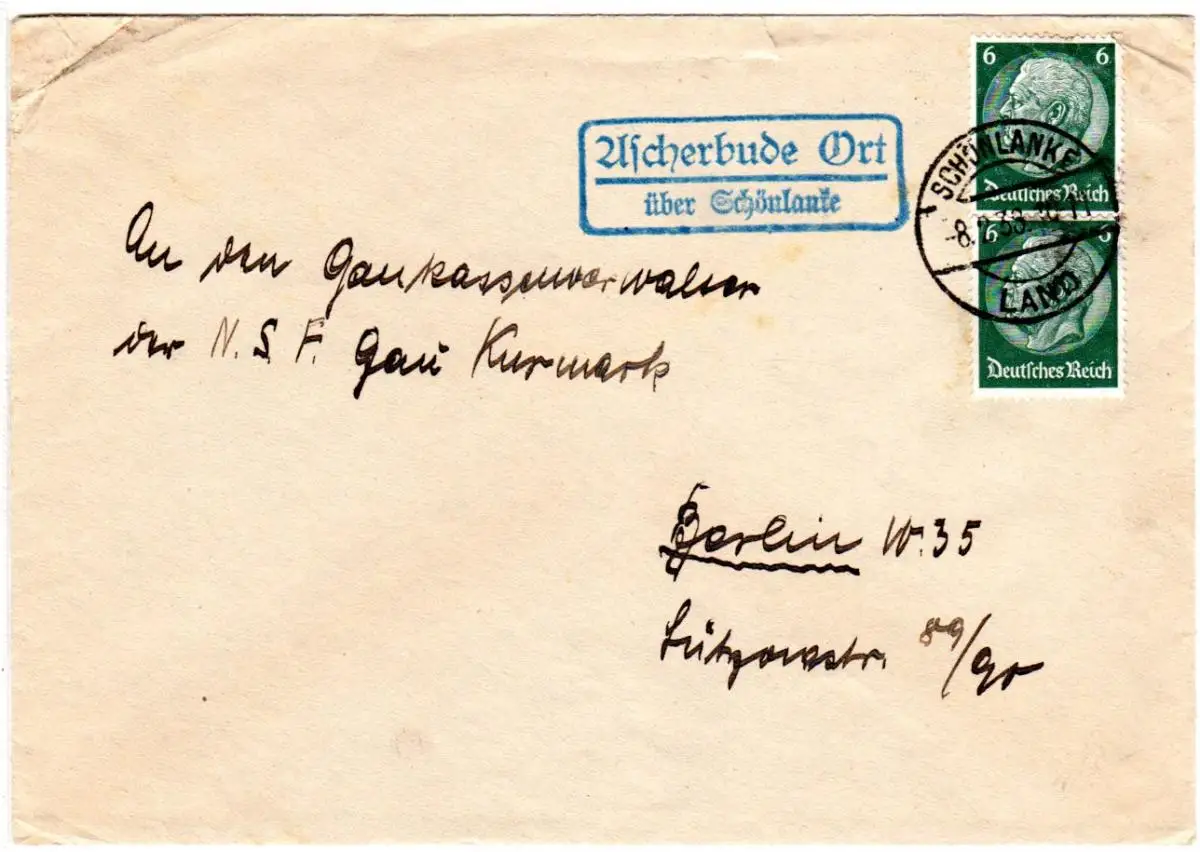 6 6
Ascherbude Ort
über Schönlanke
SCHÖNLANKE
Deutsches Reich
-8.2.38.
6 6
LAND
Deutsches Reich
An den Gaukassenverwalter
der N.S.F. Gau Kurmark
Berlin W.35
Lützowstr. 89/90